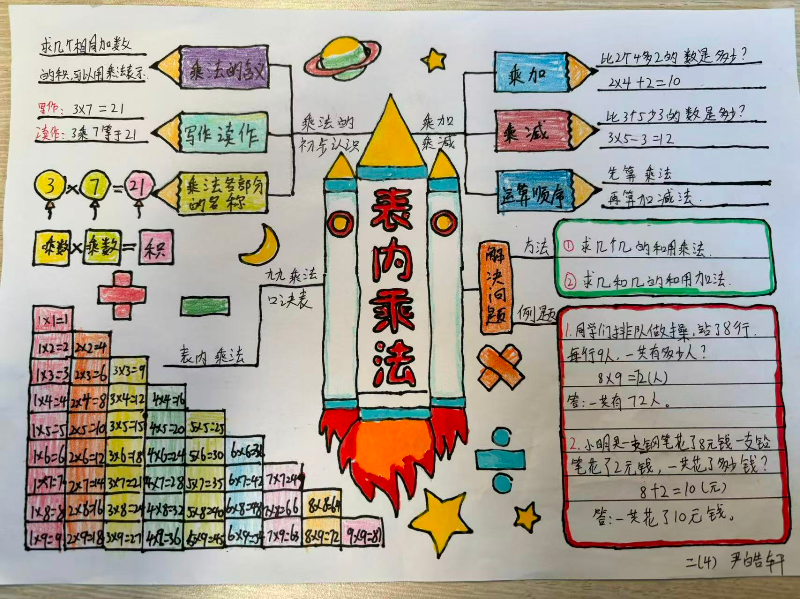 求几个相同加数
的积,可以用乘法表示.
写作: 3×7=21
读作: 3乘7等于21
乘法的含义
写作读作
乘法各部分
的名称
3×7=21
乘数×乘数=积
乘法的
初步认识
乘加
乘减
乘加
比2个4多2的数是多少?
2×4+2=10
乘减
比3个5少3的数是多少?
3×5-3=12
运算顺序
先算乘法
再算加减法.
表内乘法
九九乘法
口诀表
表内乘法
解决问题
方法
① 求几个几的和用乘法.
② 求几和几的和用加法.
例题
1.同学们排队做操,站了8行.
每行9人,一共有多少人?
8×9=72(人)
答:一共有72人.
2.小明买一支钢笔花了8元钱一支铅
笔花了2元钱,一共花了多少钱?
8+2=10(元)
答:一共花了10元钱。
1×1=1
1×2=2 2×2=4
1×3=3 2×3=6 3×3=9
1×4=4 2×4=8 3×4=12 4×4=16
1×5=5 2×5=10 3×5=15 4×5=20 5×5=25
1×6=6 2×6=12 3×6=18 4×6=24 5×6=30 6×6=36
1×7=7 2×7=14 3×7=21 4×7=28 5×7=35 6×7=42 7×7=49
1×8=8 2×8=16 3×8=24 4×8=32 5×8=40 6×8=48 7×8=66 8×8=64
1×9=9 2×9=18 3×9=27 4×9=36 5×9=45 6×9=54 7×9=63 8×9=72 9×9=81
二(4) 尹皓轩